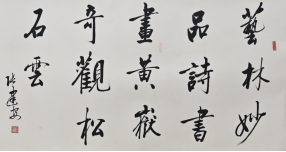 藝林妙
品詩書
畫黃嶽
奇觀松
石雲